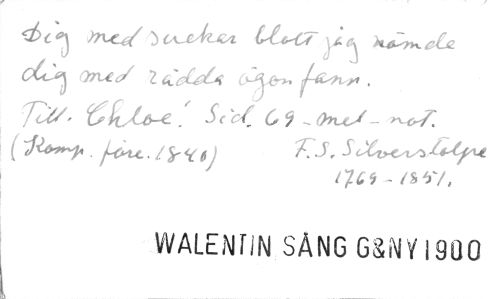 Dig med suckar blott jag nämde
dig med rädda ögon fann.
Till. Chloe! Sid. 69 - mel - not.
(Komp. före. 1840) F. S. Silverstolpe
1769 - 1851.
WALENTIN SÅNG G&NY 1900